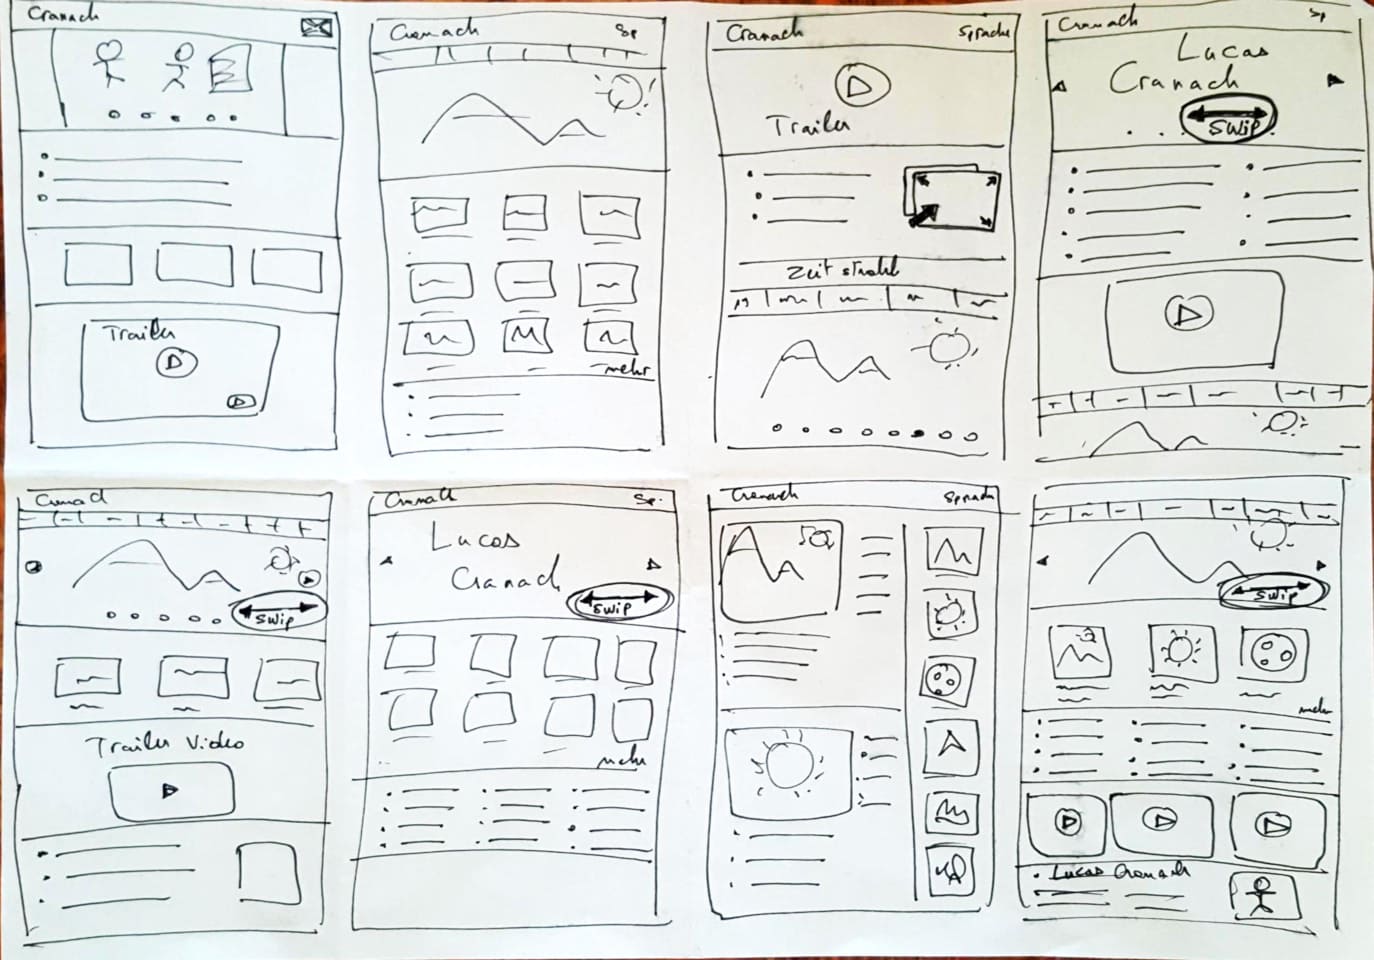 Cranach
Trailer
Cranach
Sp
mehr
Cranach
Sprache
Trailer
Zeit strahl
Cranach
Sp
Lucas
Cranach
SWiP
SWiP
Trailer Video
Cranach
Sp.
Lucas
Cranach
SWiP
mehr
Cranach
Sprache
SWiP
mehr
Lucas Cranach